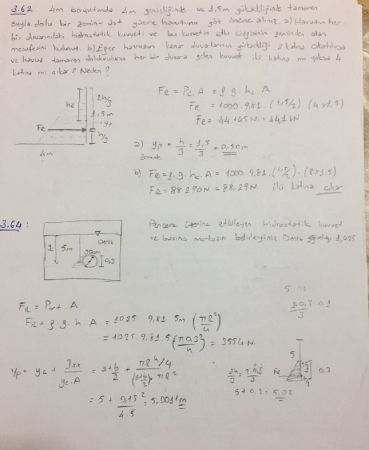 3.62 4m boyutunda 4m genişliğinde ve 1,5m yüksekliğinde tamamen
suyla dolu bir zemin üst yüzme havuzunu göz önüne alınız. a) Havuzun her
bir duvarındaki hidrostatik kuvveti ve bu kuvvetin etki çizgisinin zeminden olan
mesafesini bulunuz. b) Eğer havuzun kenar duvarlarının yüksekliği 2 katına çıkartılırsa
ve havuz tamamen doldurulursa her bir duvara gelen kuvvet iki katına mı yoksa 4
katına mı çıkar? Neden?
2h/3
hc
1,5m
yp
Fe
h/3
4m
Fe = Pc. A = ρ. g. hc. A
Fe = 1000. 9,81 (1,5/2) (4x1,5)
Fe = 44145N = 44,1kN
a) yp = h/3 = 1,5/3 = 0,50m
b) Fe = ρ. g. hc. A = 1000. 9,81. (1,5/2). (8x1,5)
Fe = 88290N = 88,29N iki katına çıkar
3.64:
Pencere üzerine etkileyen hidrostatik kuvvet
ve basınç merkezini belirleyiniz. Deniz 1,025
1
5m
Deniz
0,3
5
2.0,3
3
0,1
FR = Port A
FR = ρ. g. h A = 1025 9,81 5m (πR²/4)
= 1025. 9,81. 5 (π0,3²/4) = 3554 N.
yp = yc + Ixx/yc.A = s+b/2 + πR⁴/4 / (s+b/2). πR²
= 5 + 0,15²/4.5 = 5,0011m
Fe
5
0,3
5+0,2 = 5,02